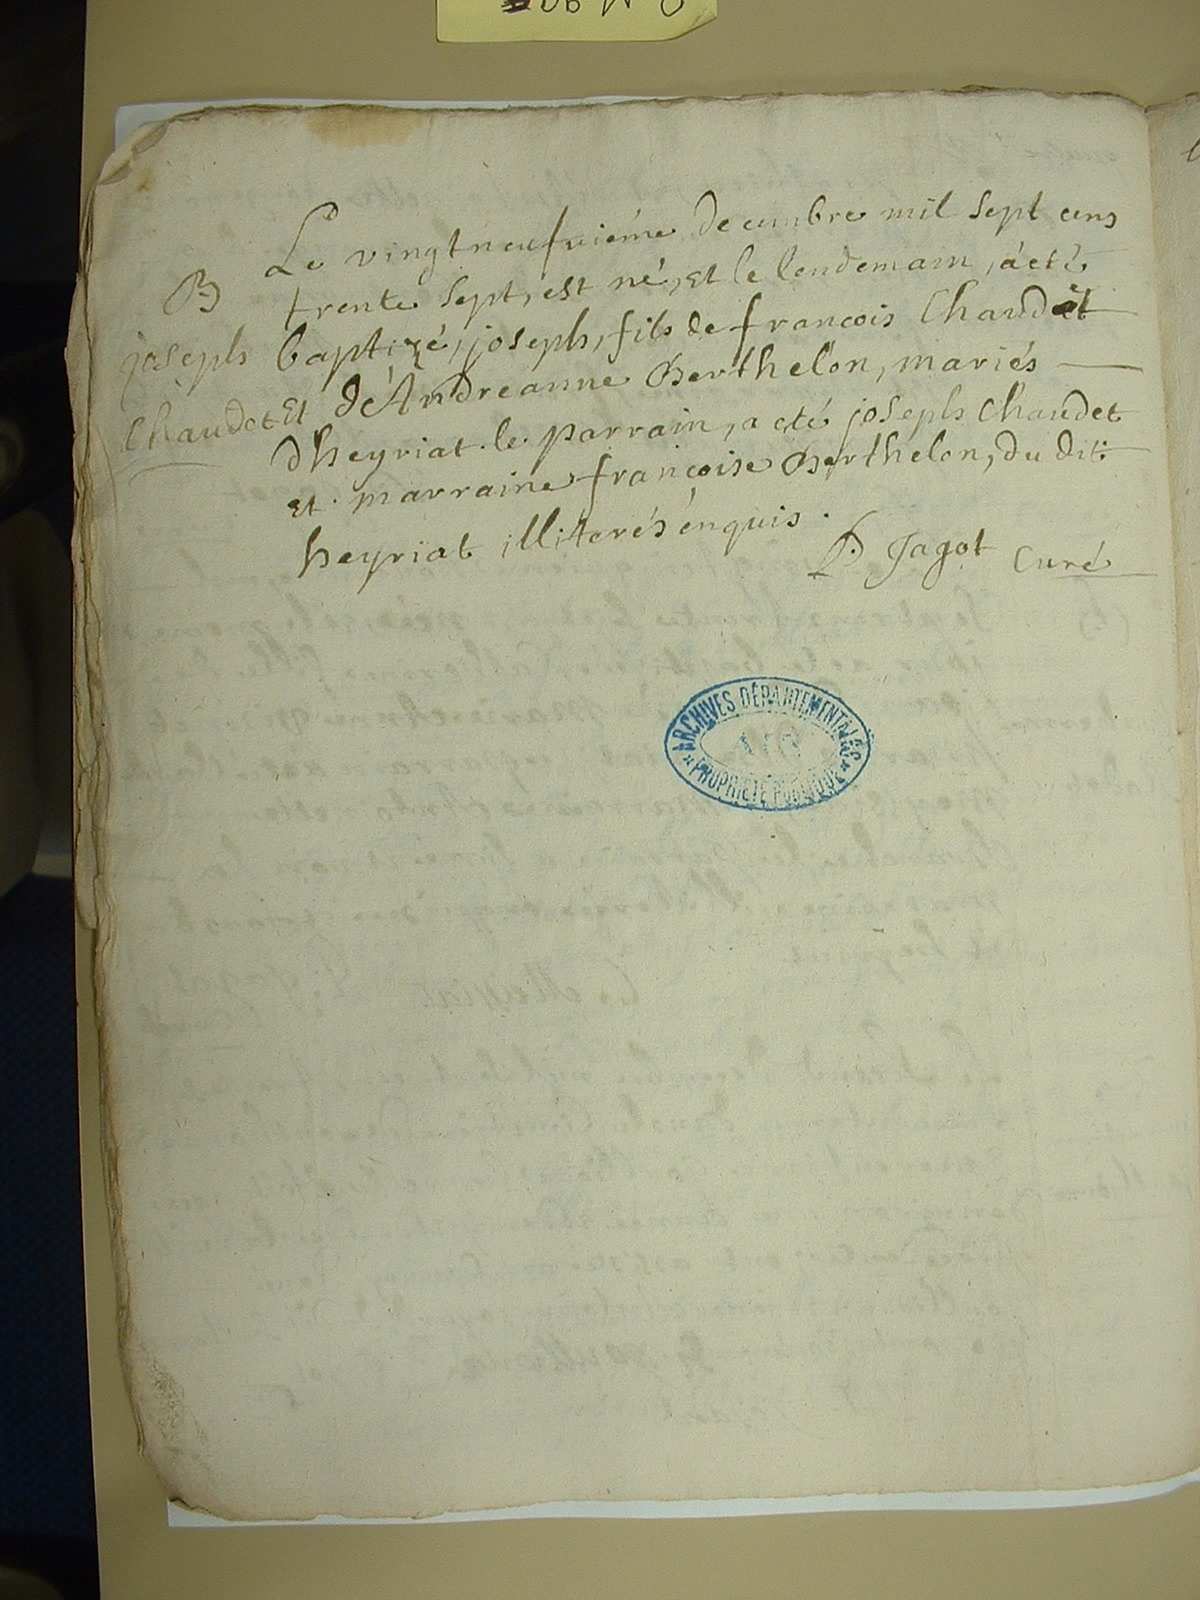 Le vingtneufvième decembre mil sept cens
B
trente sept, est né, et le lendemain, a eté
joseph
baptizé, joseph, fils de francois Chaudet
Chaudet
Et de Andreanne Berthelon, mariés
dheyriat. le parrain, a eté joseph Chaudet
Et marraine françoise Berthelon, du dit
heyriat illiterés enquis.
P. Jagot Curé
ARCHIVES DÉPARTEMENTALES
PROPRIÉTÉ PUBLIQUE